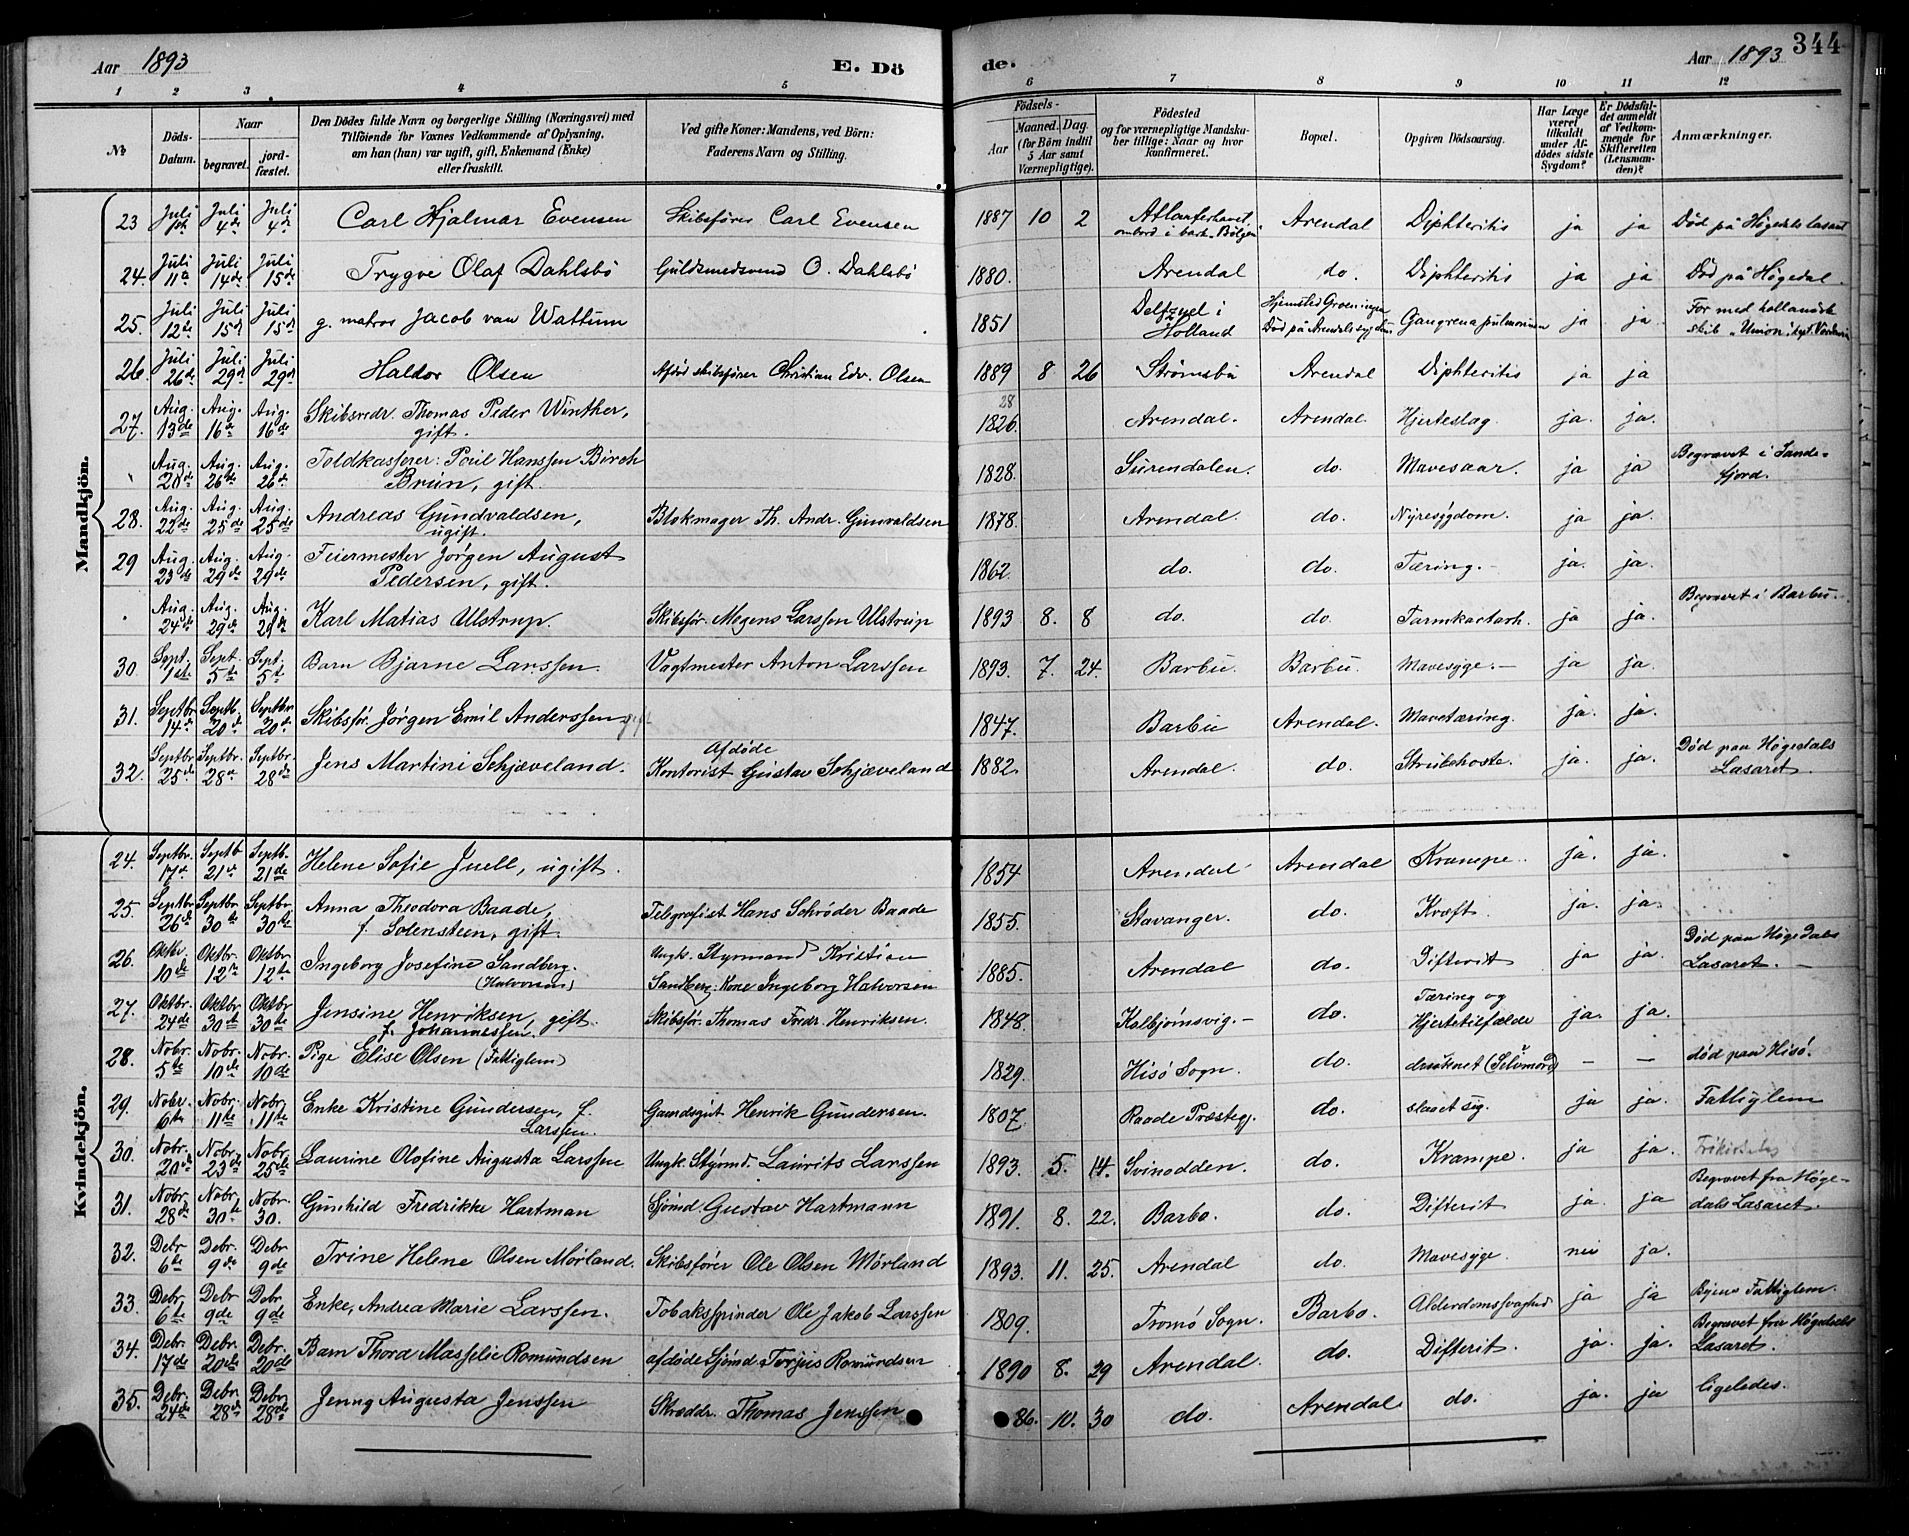 Aar 1893
E. Dö
de.
Aar 1893
344
1 2 3 4 5 6 7 8 9 10 11 12
№
Döds-Datum.
Naar
begravet.
jord-fæstet.
Den Dödes fulde Navn og borgerlige Stilling (Næringsvei) med
Tilföiende for Voxnes Vedkommende af Oplysning,
om han (hun) var ugift, gift, Enkemand (Enke)
eller fraskilt.
Ved gifte Koner: Mandens, ved Börn:
Faderens Navn og Stilling.
Födsels-
Aar
Maaned. Dag.
(for Börn indtil
5 Aar samt
Værnepligtige).
Födested
og for værnepligtige Mandska-
ber tillige: Naar og hvor
konfirmeret.
Bopæl.
Opgiven Dödsaarsag.
Har Læge
været
tilkaldt
under Af-
dödes sidste
Sygdom?
Er Dödsfal-
det anmeldt
af Vedkom-
mende for
Skifteretten
(Lensman-
den)?
Anmærkninger.
Mandkjön.
23 Juli Juli 4de Juli 4de Carl Hjalmar Evensen Skibsfører Carl Evensen 1887 10 2 Atlanterhavet ombord i bark "Bølgen" Arendal Diphteritis ja ja Död på Högedals lasaret
24. Juli 11te Juli 14de Juli 15de Trygve Olaf Dahlsbö Guldsmedsvend O. Dahlsbö 1880. Arendal do. Diphteritis ja ja Död på Högedal.
25. Juli 12te Juli 15de Juli 15de g. matros Jacob van Wattum 1851 Delfzyel i Holland Hjemsted Groeningen Död på Arendals sygehus Gangrena pulmonum ja ja. For med hollandsk skib "Union",
26. Juli 26de Juli 29de Juli 29de Haldor Olsen Afdöd skibsfører Christian Edv. Olsen 1889 8 26 Strømsbu Arendal Diphteritis ja ja
27. Aug. 13de Aug. 16de Aug. 16de Skibsredr. Thomas Peder Winther, gift. 28 1826. Arendal. Arendal. Hjerteslag ja. ja.
Aug. 20de Aug. 26de Aug. 26de Toldkasserer: Poul Hanssen Birch Brun, gift. 1828. Surendalen. do. Mavesaar. ja ja Begravet i Sandefjord.
28. Aug. 22de Aug. 25de Aug. 25de Andreas Gundvaldsen, ugift. Blokmager Th. Andr. Gunvaldsen 1878. Arendal. do. Nyresygdom. ja ja.
29 Aug. 23de Aug. 29de Aug. 29de Feiermester Jörgen August Pedersen, gift. 1862. do. do. Tæring. ja. ja.
Aug. 24de Aug. 29de Aug. 29de Karl Matias Ulstrup. Skibsför. Mogens Larssen Ulstrup 1893 8. 8 do. do. Tarmkactarh. ja ja. Begravet i Barbu.
30. Sept. 1ste Sept. 5te Sept. 5te Barn Bjarne Larssen. Vagtmester Anton Larssen 1893. 7. 24. Barbu. Barbu. Mavesyge. ja ja.
31. Septbr. 14de Septb. 20de Septbr. 20de Skibsför. Jörgen Emil Anderssen, gift 1847. Barbu Arendal. Mavetæring. ja. ja.
32. Septbr. 25de Septbr. 28de Septbr. 28de Jens Martini Schjæveland. Afdöde Kontorist Gustav Schjæveland 1882. Arendal. do. Strubehoste. ja. ja. Död paa Högedals Lasaret.
Kvindekjön.
24. Septbr. 17de Septb 21de Septb. 21de Helene Sofie Juell, ugift. 1854 Arendal Arendal Krampe. ja. ja.
25. Septbr. 26de Septbr. 30te Septbr. 30te Anna Theodora Baade, f. Solensteen, gift. Telegrafist Hans Schröder Baade 1855. Stavanger. do. Kræft. ja. ja.
26. Oktbr. 10de Oktbr. 12te Oktbr. 12te Ingeborg Josefine Sandberg. (Halvorsen) Ungk. Styrmand Kristian Sandberg. Kone Ingeborg Halvorsen 1885. Arendal do. Difterit ja ja. Död paa Högedals Lasaret.
27. Oktbr. 24de Oktbr. 30te Oktbr. 30te Jensine Henriksen, gift. f. Johannessen. Skibsför. Thomas Fredr. Henriksen. 1848. Kalbjørnsvig. do. Tæring og Hjertetilfælde ja. ja.
28. Nobr. 5te Nobr. 10de Nobr. 10de Pige Elise Olsen (Fattiglem) 1829. Hisö Sogn. do. druknet (Selvmord) — — död paa Hisö.
29. Nobr. 6te Nobr. 11te Nobr. 11te Enke Kristine Gundersen, f. Larssen. Gaardsgut Henrik Gundersen. 1807. Raade Præsteg. do. slaaet sig. ja ja. Fattiglem
30. Nobr. 20de Nobr. 23de Nobr. 25de Laurine Olofine Augusta Larssen Ungk. Styrmd. Laurits Larssen 1893. 5. 14. Svinodden. do. Krampe. ja ja.
31. Nobr. 28de Nobr. 30te Nobr. 30. Gunhild Fredrikke Hartman Sjömd. Gustav Hartmann 1891. 8. 22. Barbo. do. Difterit ja. ja Begravet fra Högedals Lasaret.
32. Debr. 6te Debr. 9de Debr. 9de Trine Helene Olsen Mörland. Skibsfører Ole Olsen Mörland 1893. 11. 25. Arendal do. Mavesyge nei ja.
33. Debr. 6te Debr. 9de Debr. 9de Enke, Andrea Marie Larssen. Tobaksspinder Ole Jakob Larssen 1809. Tromö Sogn. Barbo. Alderdomssvaghed ja ja Byens Fattiglem.
34. Debr. 17de Debr. 20de Debr. 20de Barn Thora Masselie Romundsen afdöde Sjömd. Terjus Romundsen 1890 8. 29 Arendal. do. Difterit. ja. ja. Begravet fra Högedals Lasaret.
35. Debr. 24de Debr. 28de Debr. 28de Jenny Augusta Jenssen Skrædder. Thomas Jenssen 86. 10. 30 do. Arendal. do. ja. ja ligeledes.